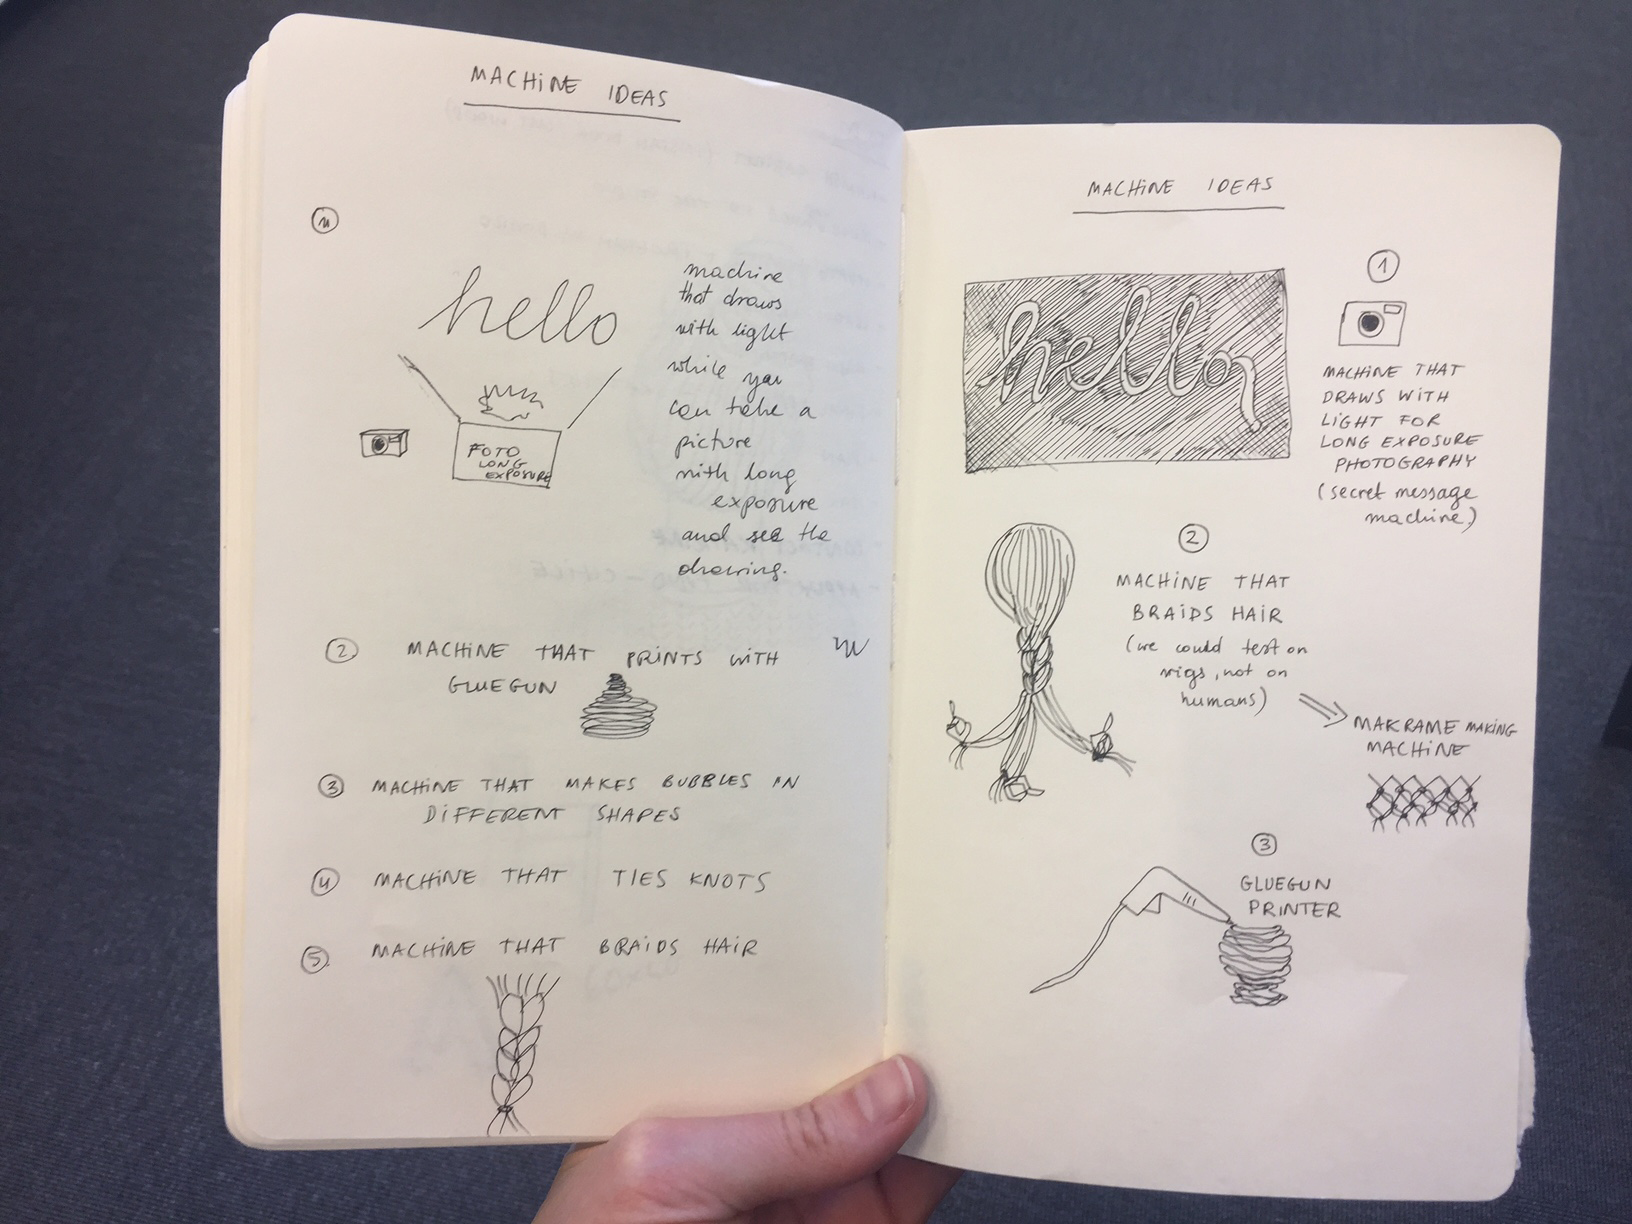 MACHINE IDEAS
1
hello
machine
that draws
with light
while you
can take a
picture
with long
exposure
and see the
drawing.
FOTO
LONG
EXPOSURE
2 MACHINE THAT PRINTS WITH
GLUEGUN
3 MACHINE THAT MAKES BUBBLES IN
DIFFERENT SHAPES
4 MACHINE THAT TIES KNOTS
5. MACHINE THAT BRAIDS HAIR
MACHINE IDEAS
hello
1
MACHINE THAT
DRAWS WITH
LIGHT FOR
LONG EXPOSURE
PHOTOGRAPHY
(secret message
machine)
2
MACHINE THAT
BRAIDS HAIR
(we could test on
wigs, not on
humans)
MAKRAME MAKING
MACHINE
3
GLUEGUN
PRINTER